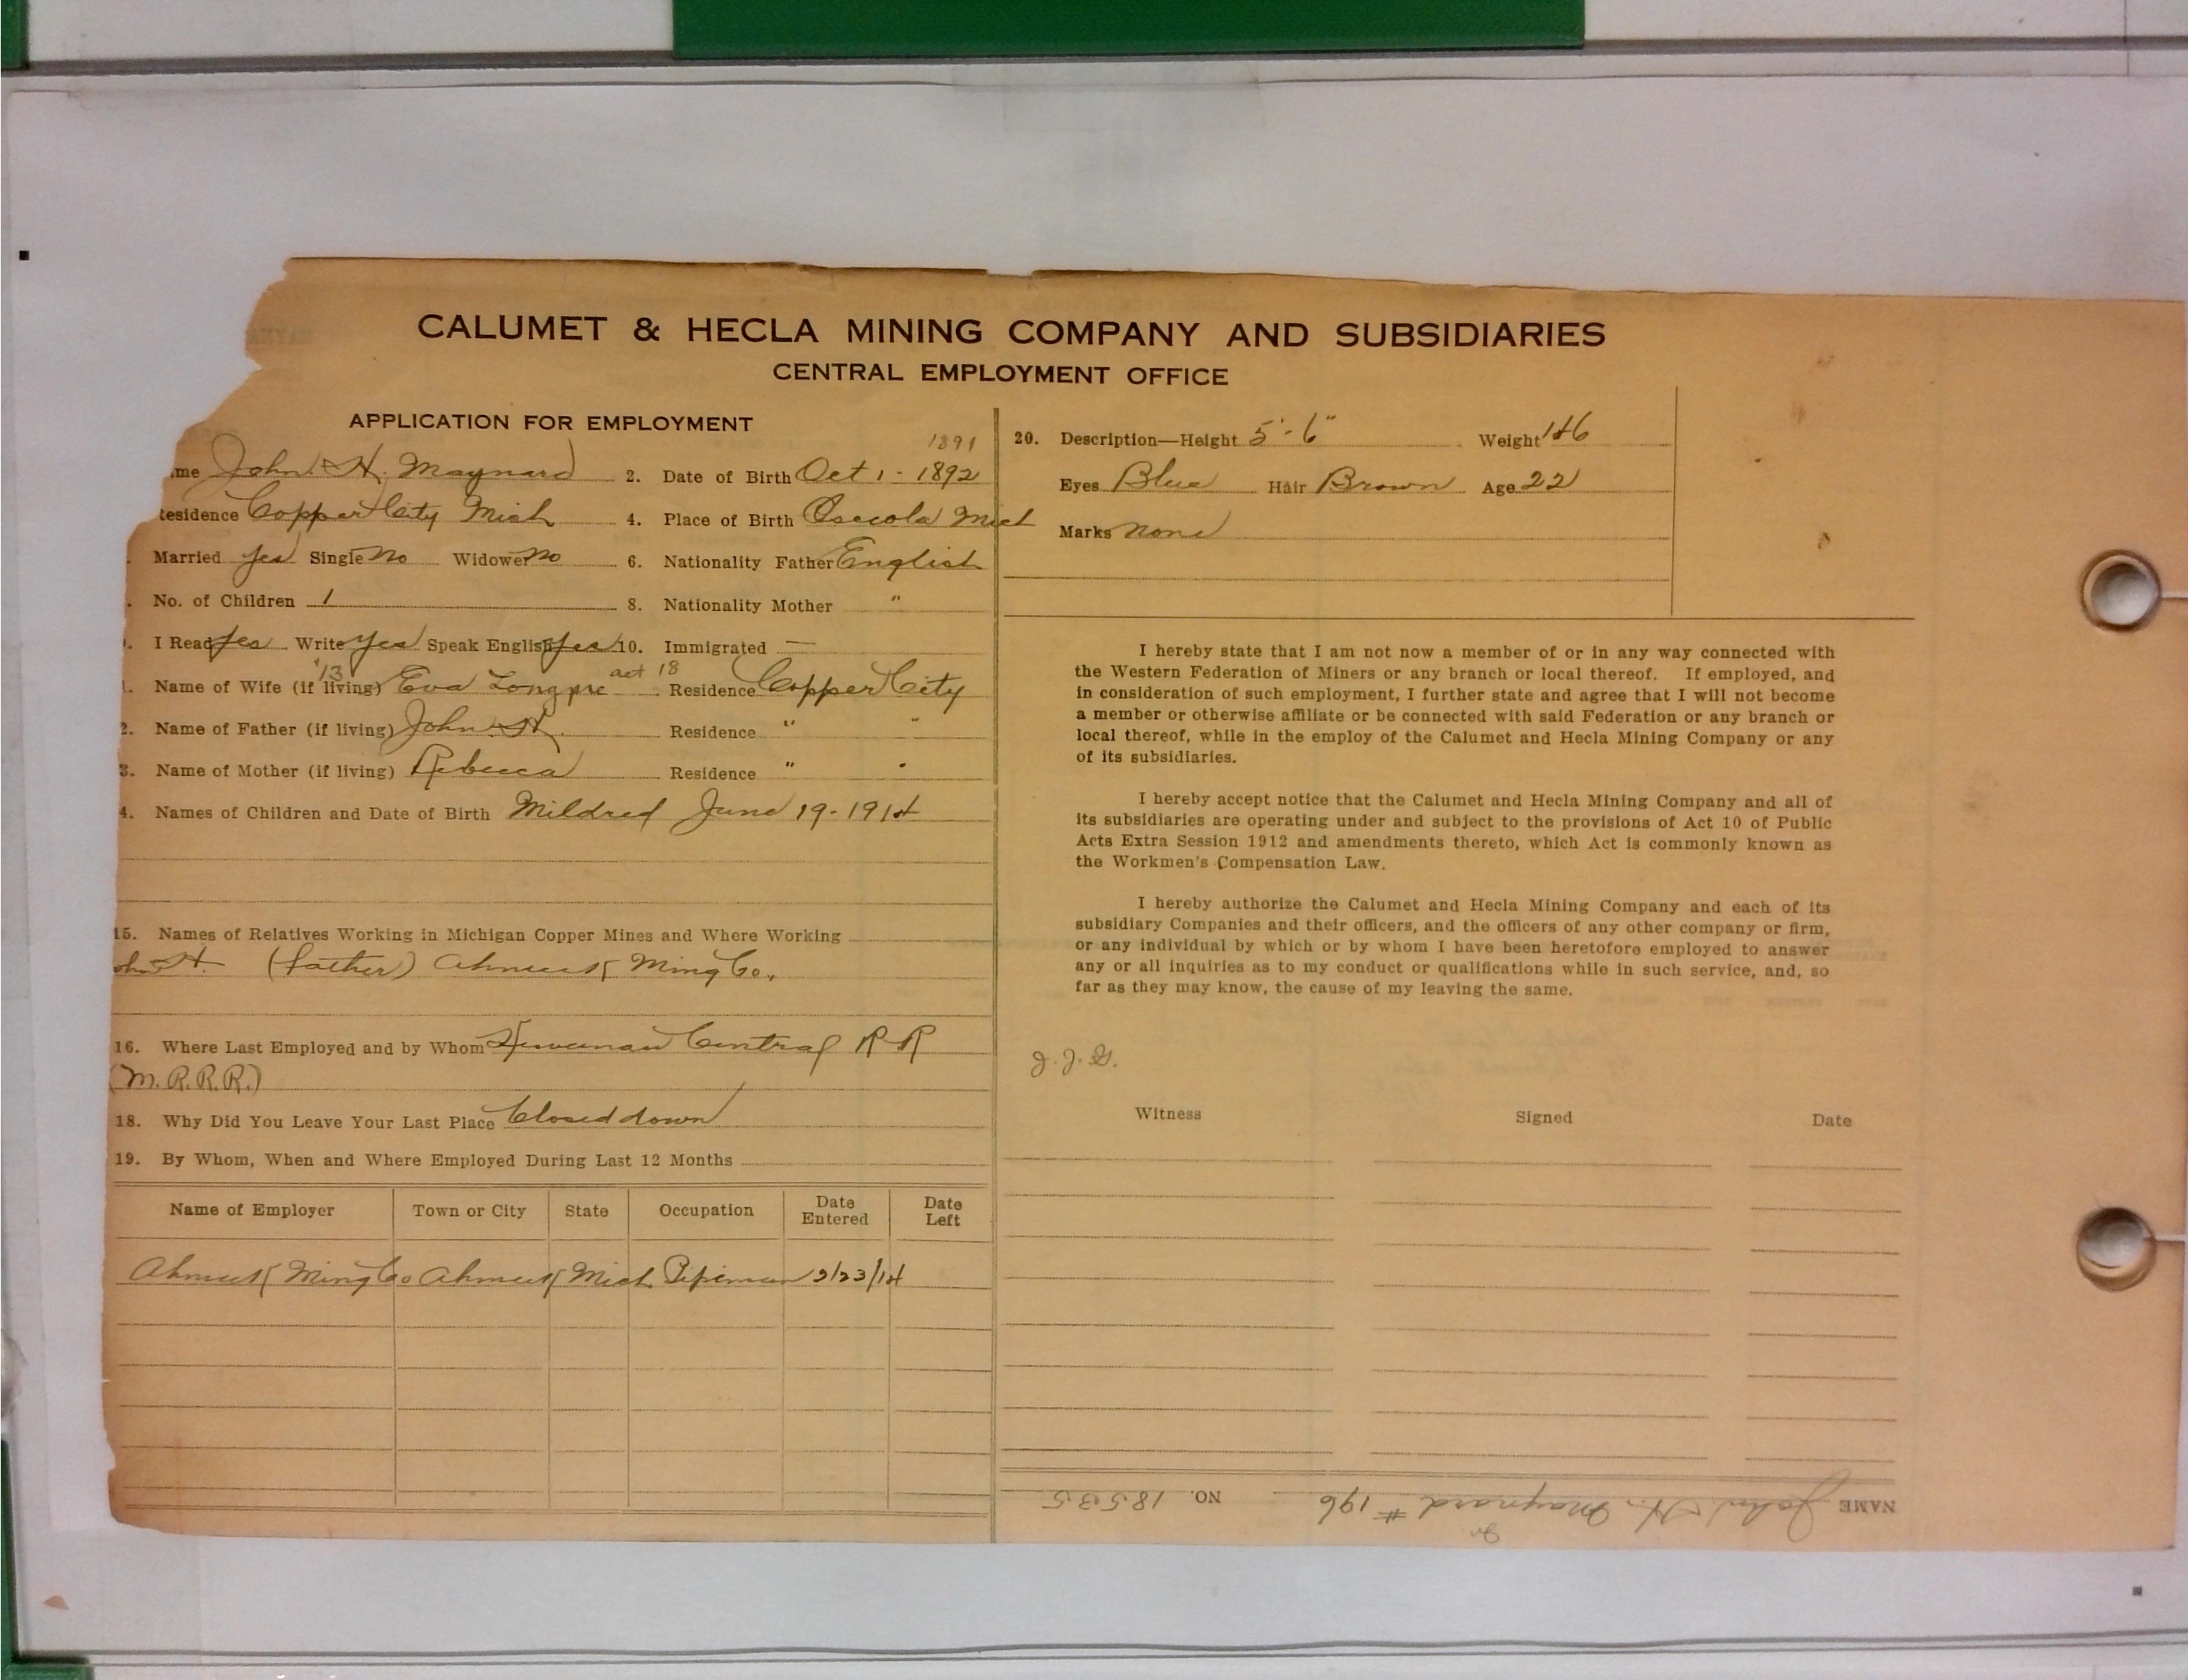 CALUMET & HECLA MINING COMPANY AND SUBSIDIARIES
CENTRAL EMPLOYMENT OFFICE
APPLICATION FOR EMPLOYMENT
1891
me John H. Maynard 2. Date of Birth Oct 1 - 1892
Residence Copper City Mich 4. Place of Birth Osceola Mich
Married yes Single No Widower No 6. Nationality Father English
No. of Children 1 8. Nationality Mother "
I Read yes Write yes Speak English yes 10. Immigrated —
'13 18
1. Name of Wife (if living) Eva Longpre Residence Copper City
2. Name of Father (if living) John H. Residence " "
3. Name of Mother (if living) Rebecca Residence " "
4. Names of Children and Date of Birth Mildred June 19 - 1914
15. Names of Relatives Working in Michigan Copper Mines and Where Working
John H. (father) Ahmeek Ming Co.
16. Where Last Employed and by Whom Keweenaw Central R R
(M.R.R.R.)
18. Why Did You Leave Your Last Place Closed down
19. By Whom, When and Where Employed During Last 12 Months
Name of Employer Town or City State Occupation Date Entered Date Left
Ahmeek Ming Co Ahmeek Mich Pipeman 2/23/14
20. Description—Height 5'-6" Weight 146
Eyes Blue Hair Brown Age 22
Marks none
I hereby state that I am not now a member of or in any way connected with
the Western Federation of Miners or any branch or local thereof. If employed, and
in consideration of such employment, I further state and agree that I will not become
a member or otherwise affiliate or be connected with said Federation or any branch or
local thereof, while in the employ of the Calumet and Hecla Mining Company or any
of its subsidiaries.
I hereby accept notice that the Calumet and Hecla Mining Company and all of
its subsidiaries are operating under and subject to the provisions of Act 10 of Public
Acts Extra Session 1912 and amendments thereto, which Act is commonly known as
the Workmen's Compensation Law.
I hereby authorize the Calumet and Hecla Mining Company and each of its
subsidiary Companies and their officers, and the officers of any other company or firm,
or any individual by which or by whom I have been heretofore employed to answer
any or all inquiries as to my conduct or qualifications while in such service, and, so
far as they may know, the cause of my leaving the same.
Witness Signed Date
NAME John H. Maynard Jr # 196 NO. 18535